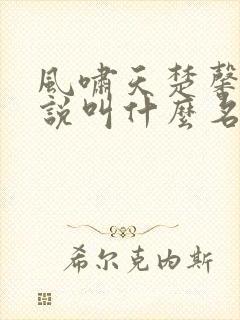 風嘯天楚馨
說叫什麼名
希尔克内斯